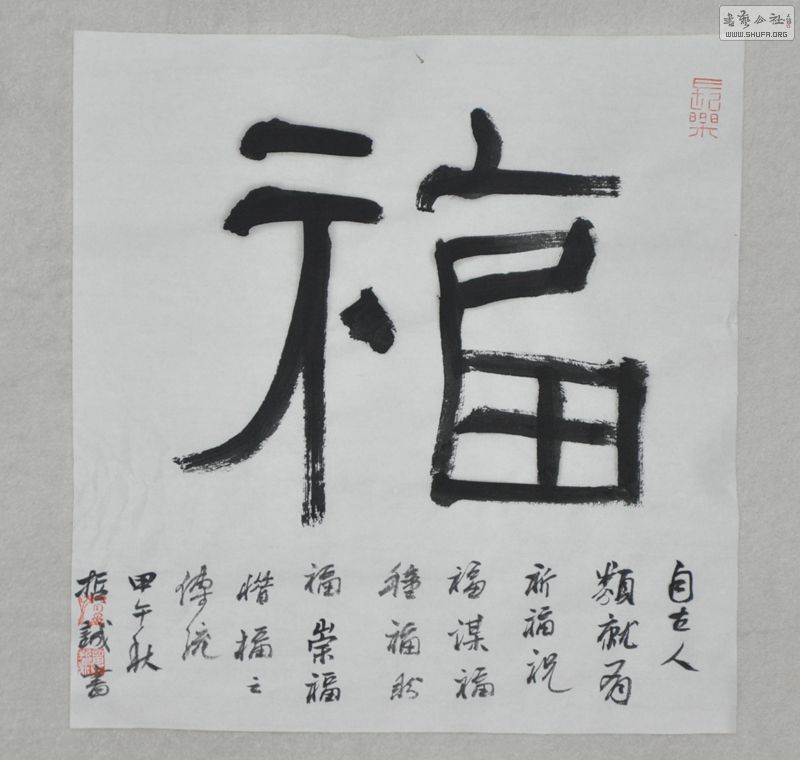 福
自古人
類就有
祈福祝
福謀福
種福財
福崇福
惜福之
傳統
甲午秋
哲誠書
長樂
书艺公社
WWW.SHUFA.ORG